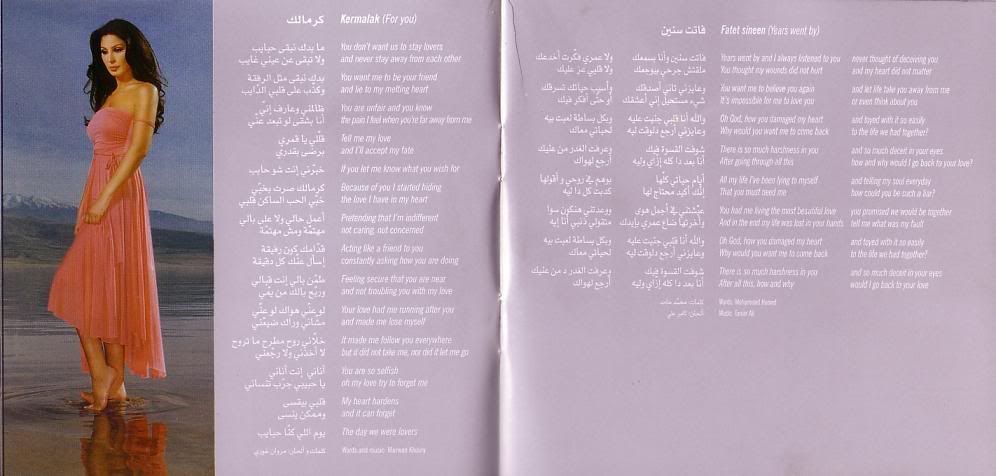 كرمالك
Kermalak (For you)
ما بدك نبقى حبايب
ولا تبقى عن عيني غايب
You don't want us to stay lovers
and never stay away from each other
بدك نبقى مثل الرفقة
وكذّب على قلبي الدّايب
You want me to be your friend
and lie to my melting heart
ظالمني وعارف إنّي
أنا بشقى لو تبعد عني
You are unfair and you know
the pain I feel when you're far away from me
قلّي يا قمري
برضى بقدري
Tell me my love
and I'll accept my fate
خبّرني إنت شو حابب
If you let me know what you wish for
كرمالك صرت بخبّي
خبّي الحب الساكن قلبي
Because of you I started hiding
the love I have in my heart
أعمل حالي ولا على بالي
مهتمّة ومش مهتمّة
Pretending that I'm indifferent
not caring, not concerned
قدّامك كون رفيقة
إسأل عنّك كل دقيقة
Acting like a friend to you
constantly asking how you are doing
طمّن بالي إنت قبالي
وريّح بالك من يمّي
Feeling secure that you are near
and not troubling you with my love
لوعني هواك لوعنّي
مشاني وراك ضيعني
Your love had me running after you
and made me lose myself
خلاني روح مطرح ما تروح
لا أخدني ولا رجعني
It made me follow you everywhere
but it did not take me, nor did it let me go
أناني إنت أناني
يا حبيبي جرّب تنساني
You are so selfish
oh my love try to forget me
قلبي بيقسى
وممكن ينسى
My heart hardens
and it can forget
يوم اللي كنّا حبايب
The day we were lovers
كلمات و ألحان: مروان خوري
Words and music: Marwan Khoury
فاتت سنين
Fatet sineen (Years went by)
فاتت سنين وأنا بسمعك
ولا عمري فكّرت أخدعك
ملقتش جرحي بيوجعك
ولا قلبي عز عليك
Years went by and I always listened to you
never thought of deceiving you
You thought my wounds did not hurt
and my heart did not matter
وعايزني تاني أصدقك
وأسيب حياتك تسرقك
شيء مستحيل إني أعشقك
أو حتّى أفكر فيك
You want me to believe you again
and let life take you away from me
It's impossible for me to love you
or even think about you
والله أنا قلبي جنيت عليه
وبكل بساطة لعبت بيه
وعايزني أرجع دلوقت ليه
لحياتي معاك
Oh God, how you damaged my heart
and toyed with it so easily
Why would you want me to come back
to the life we had together?
شوفت القسوة فيك
وعرفت الغدر من عنيك
أنا بعد دا كله إزاي وليه
أرجع لهواك
There is so much harshness in you
and so much deceit in your eyes
After going through all this
how and why would I go back to your love?
أيام حياتي كلّها
بوهم في روحي و أقولها
إنّك أكيد محتاج لها
كدبت كل دا ليه
All my life I've been lying to myself
and telling my soul everyday
That you must need me
how could you be such a liar?
عيّشتني في أجمل هوى
ووعدتني هنكون سوا
وأخرتها ضاع عمري بإيدك
متقولي ذنبي أنا إيه
You had me living the most beautiful love
you promised we would be together
And in the end my life was lost in your hands
tell me what was my fault
والله أنا قلبي جنيت عليه
وبكل بساطة لعبت بيه
وعايزني أرجع دلوقت ليه
لحياتي معاك
Oh God, how you damaged my heart
and toyed with it so easily
Why would you want me to come back
to the life we had together?
شوفت القسوة فيك
وعرفت الغدر من عنيك
أنا بعد دا كله إزاي وليه
أرجع لهواك
There is so much harshness in you
and so much deceit in your eyes
After all this, how and why
would I go back to your love
كلمات: محمّد حامد
Words: Mohammed Hamed
ألحان: تامر علي
Music: Tamer Ali